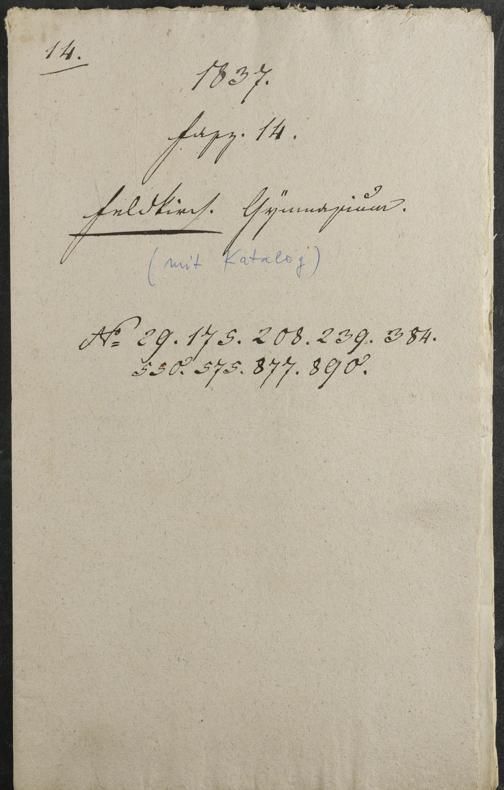 14.
1837.
Fasz. 14.
Feldkirch. Gÿmnasium.
(mit Katalog)
No 29. 175. 208. 239. 384.
550. 575. 877. 890.